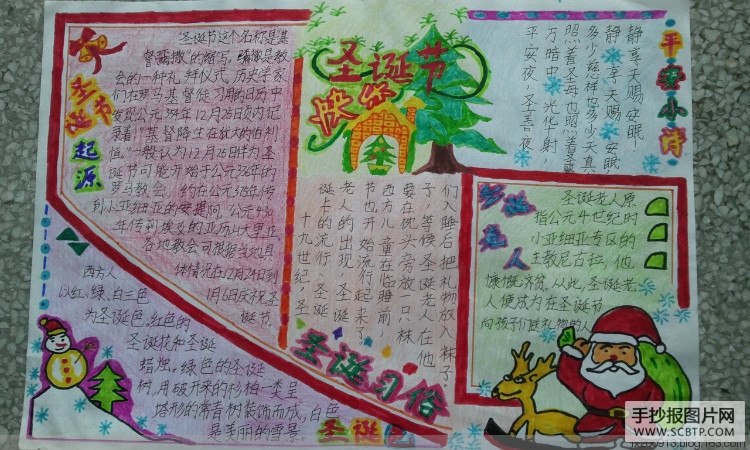 圣诞节
快乐
圣诞节起源
圣诞节这个名称是基
督弥撒的缩写,弥撒是教
会的一种礼拜仪式,历史学家
们在罗马基督徒习用的日历中
发现公元354年12月25日页内记
录着“基督降生在犹大的伯利
恒。”一般认为12月25日伴为圣
诞节可能开始于公元336年的
罗马教会,约在公元375年传
到小亚细亚的安提阿,公元430
年传到埃及的亚历山大里亚
各地教会可根据当地具
体情况在12月24日到
1月6日庆祝圣
诞节。
平安小诗
静享天赐安眠!
静享天赐安眠
多少慈祥也多少天真
照着圣母也照着圣婴
万暗中,光华射,
平安夜,圣善夜
圣诞老人
圣诞老人原
指公元4世纪时
小亚细亚专区的
主教尼古拉,他
慷慨济贫,从此,圣诞老
人便成为在圣诞节
向孩子们送礼物的人
圣诞习俗
十九世纪,圣
诞卡的流行,圣诞
老人的出现,圣诞
节也开始流行起来了。
西方儿童在临睡前,
要在枕头旁放一只袜
子,等候圣诞老人在他
们入睡后把礼物放入袜子
圣诞色
西方人
以红、绿、白三色
为圣诞色,红色的
圣诞花和圣诞
蜡烛。绿色的圣诞
树,用砍开来的杉柏一类呈
塔形的常青树装饰而成,白色
是美丽的雪景
手抄报图片网
WWW.SCBTP.COM